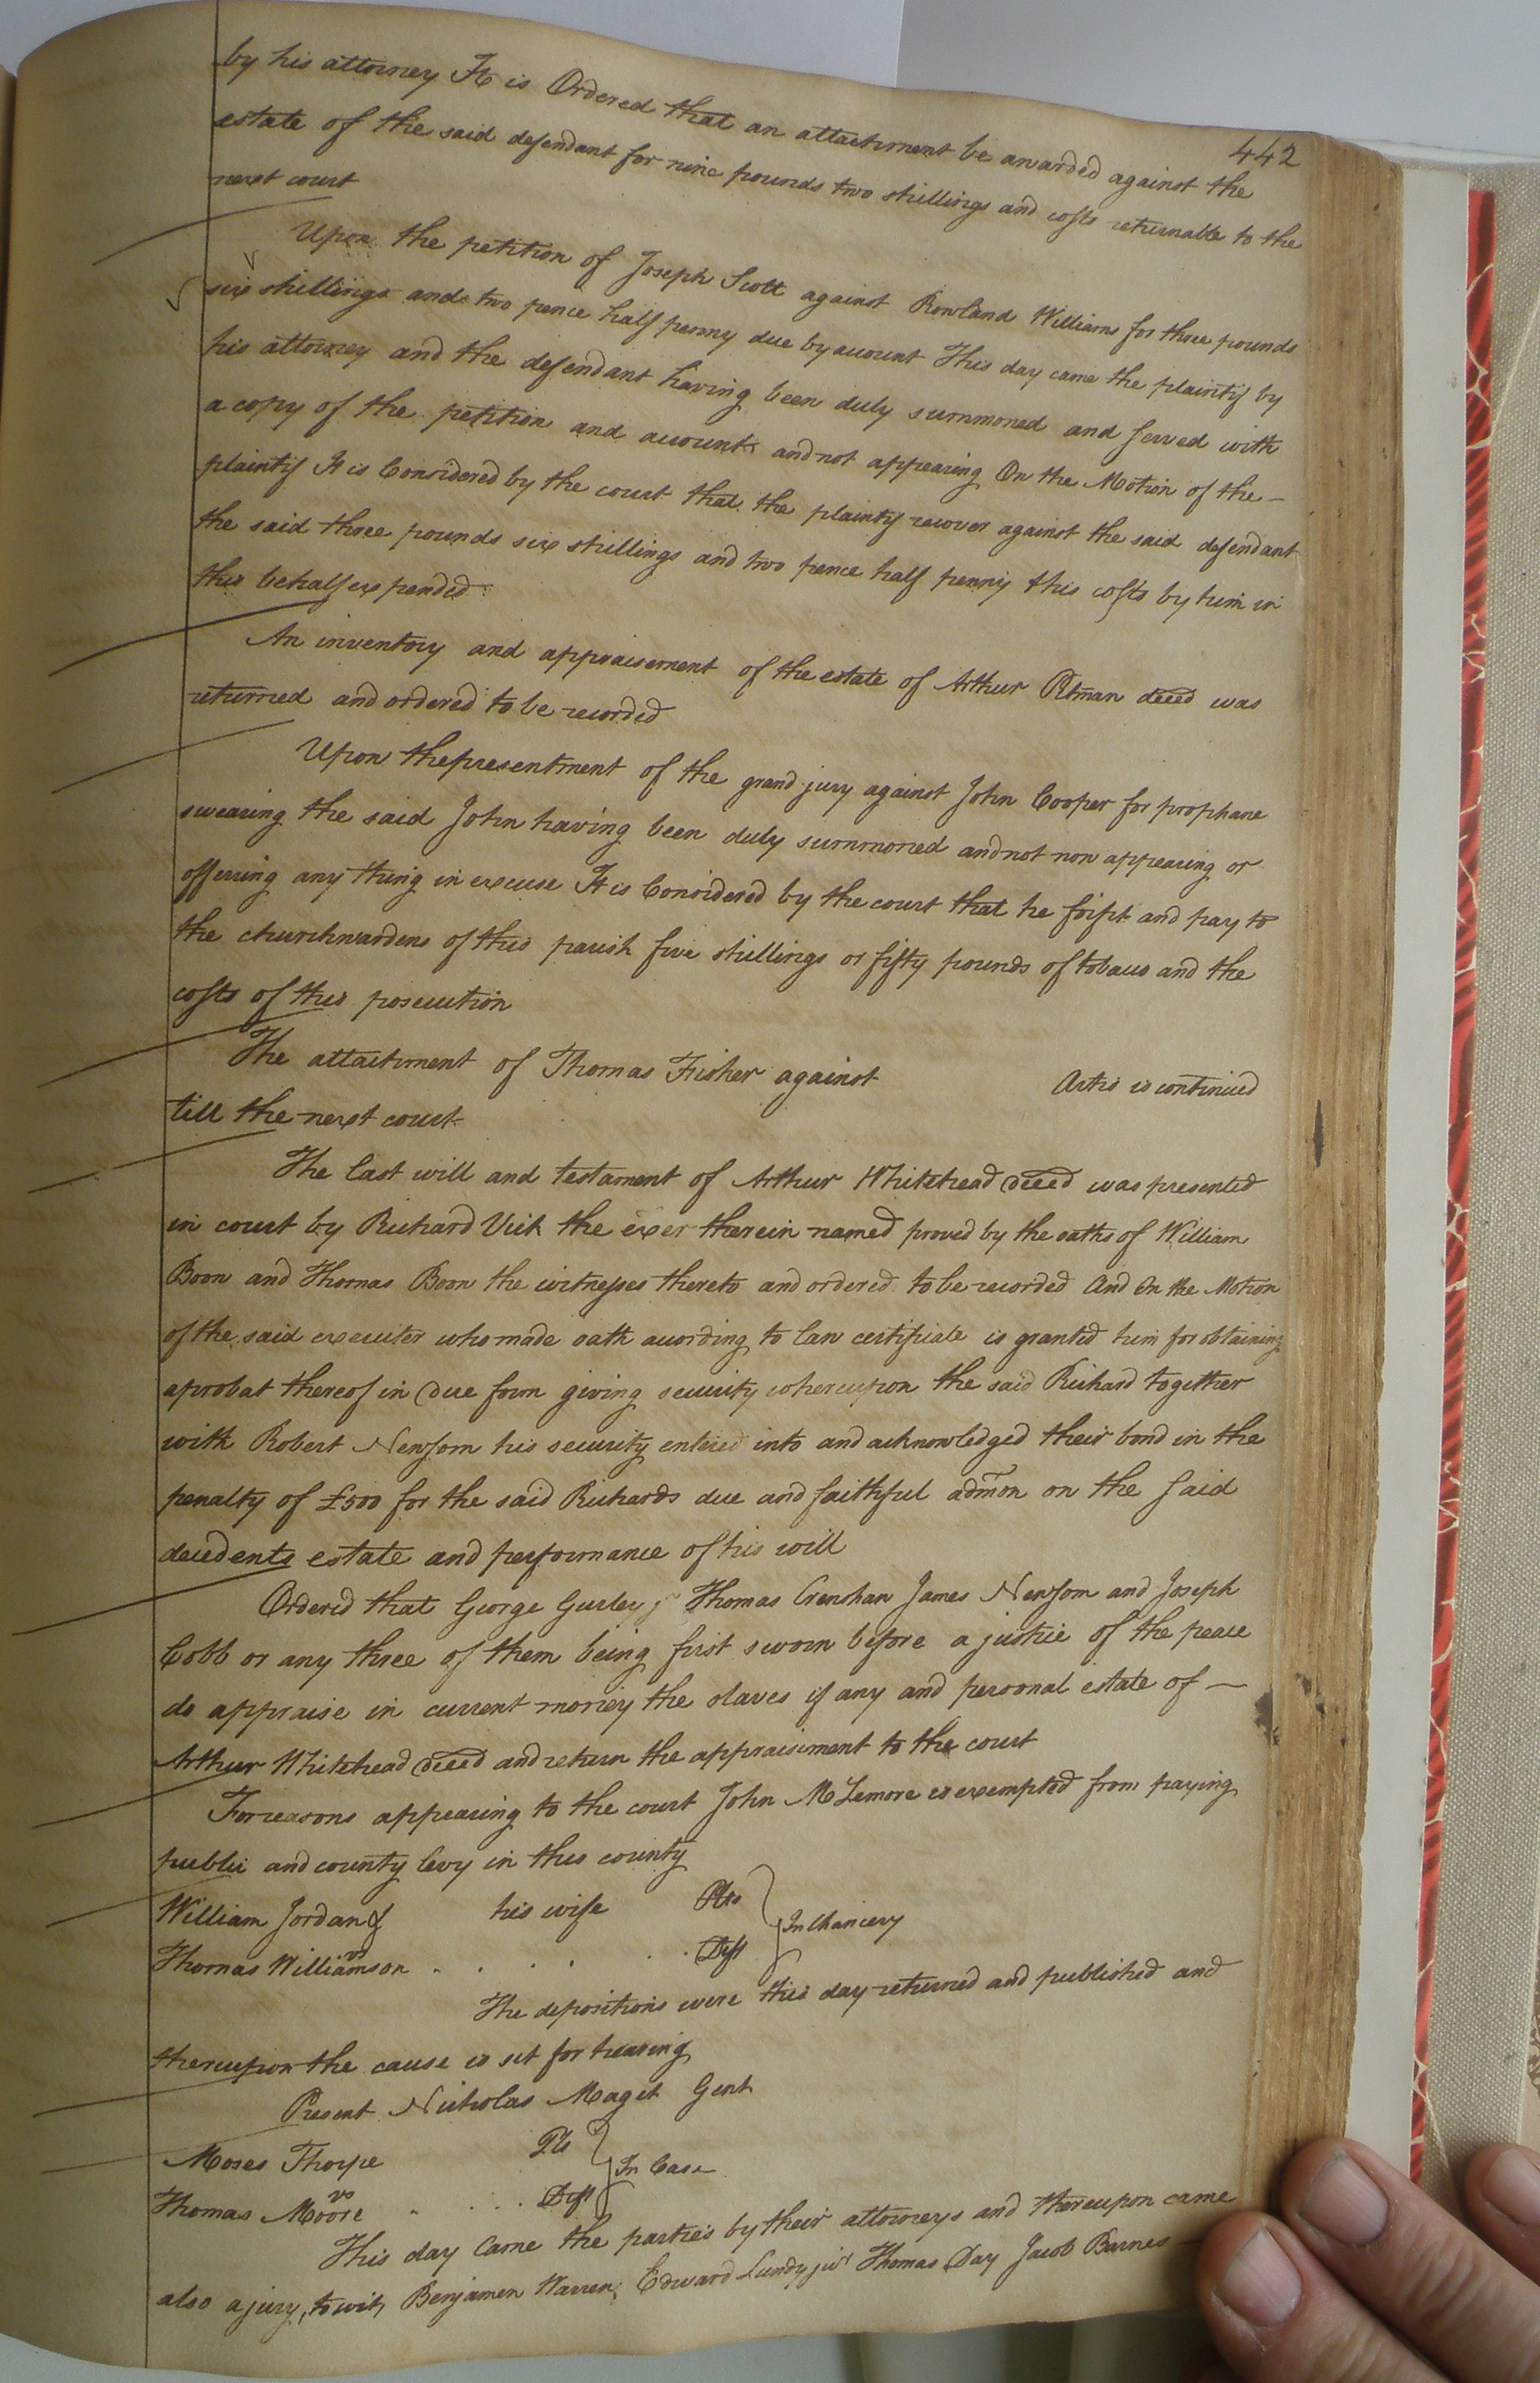 442
by his attorney It is Ordered that an attachment be awarded against the
estate of the said defendant for nine pounds two shillings and costs returnable to the
next court
Upon the petition of Joseph Scott against Rowland Williams for three pounds
six shillings and two pence half penny due by account This day came the plaintif by
his attorney and the defendant having been duly summoned and served with
a copy of the petition and account and not appearing On the Motion of the –
plaintif It is Considered by the court that the plaintif recover against the said defendant
the said three pounds six shillings and two pence half penny & his costs by him in
this behalf expended
An inventory and appraisement of the estate of Arthur Pitman deced was
returned and ordered to be recorded
Upon the presentment of the grand jury against John Cooper for prophane
swearing the said John having been duly summoned and not now appearing or
offering any thing in excuse It is Considered by the court that he forfit and pay to
the churchwardens of this parish five shillings or fifty pounds of tobacco and the
costs of this prosecution
The attachment of Thomas Fisher against Artis is continued
till the next court
The last will and testament of Arthur Whitehead deced was presented
in court by Richard Vick the exer therein named proved by the oaths of William
Boon and Thomas Boon the witnesses thereto and ordered to be recorded And On the Motion
of the said executer who made oath according to law certificate is granted him for obtaining
a probat thereof in due form giving security whereupon the said Richard together
with Robert Newsom his security entered into and acknowledged their bond in the
penalty of £500 for the said Richards due and faithful admon on the said
decedents estate and performance of his will
Ordered that George Gurley jr Thomas Crenshaw James Newsom and Joseph
Cobb or any three of them being first sworn before a justice of the peace
do appraise in current money the slaves if any and personal estate of –
Arthur Whitehead deced and return the appraisement to the court
For reasons appearing to the court John McLemore is exempted from paying
public and county levy in this county
William Jordan & his wife Plts
vs In Chancery
Thomas Williamson . . . . . Deft
The depositions were this day returned and published and
thereupon the cause is set for hearing
Present Nicholas Maget Gent
Moses Thorpe Plt
vs In Case
Thomas Moore . . . . Deft
This day Came the parties by their attorneys and thereupon came
also a jury, to wit, Benjamen Warren, Edward Lundy junr Thomas Day Jacob Barnes